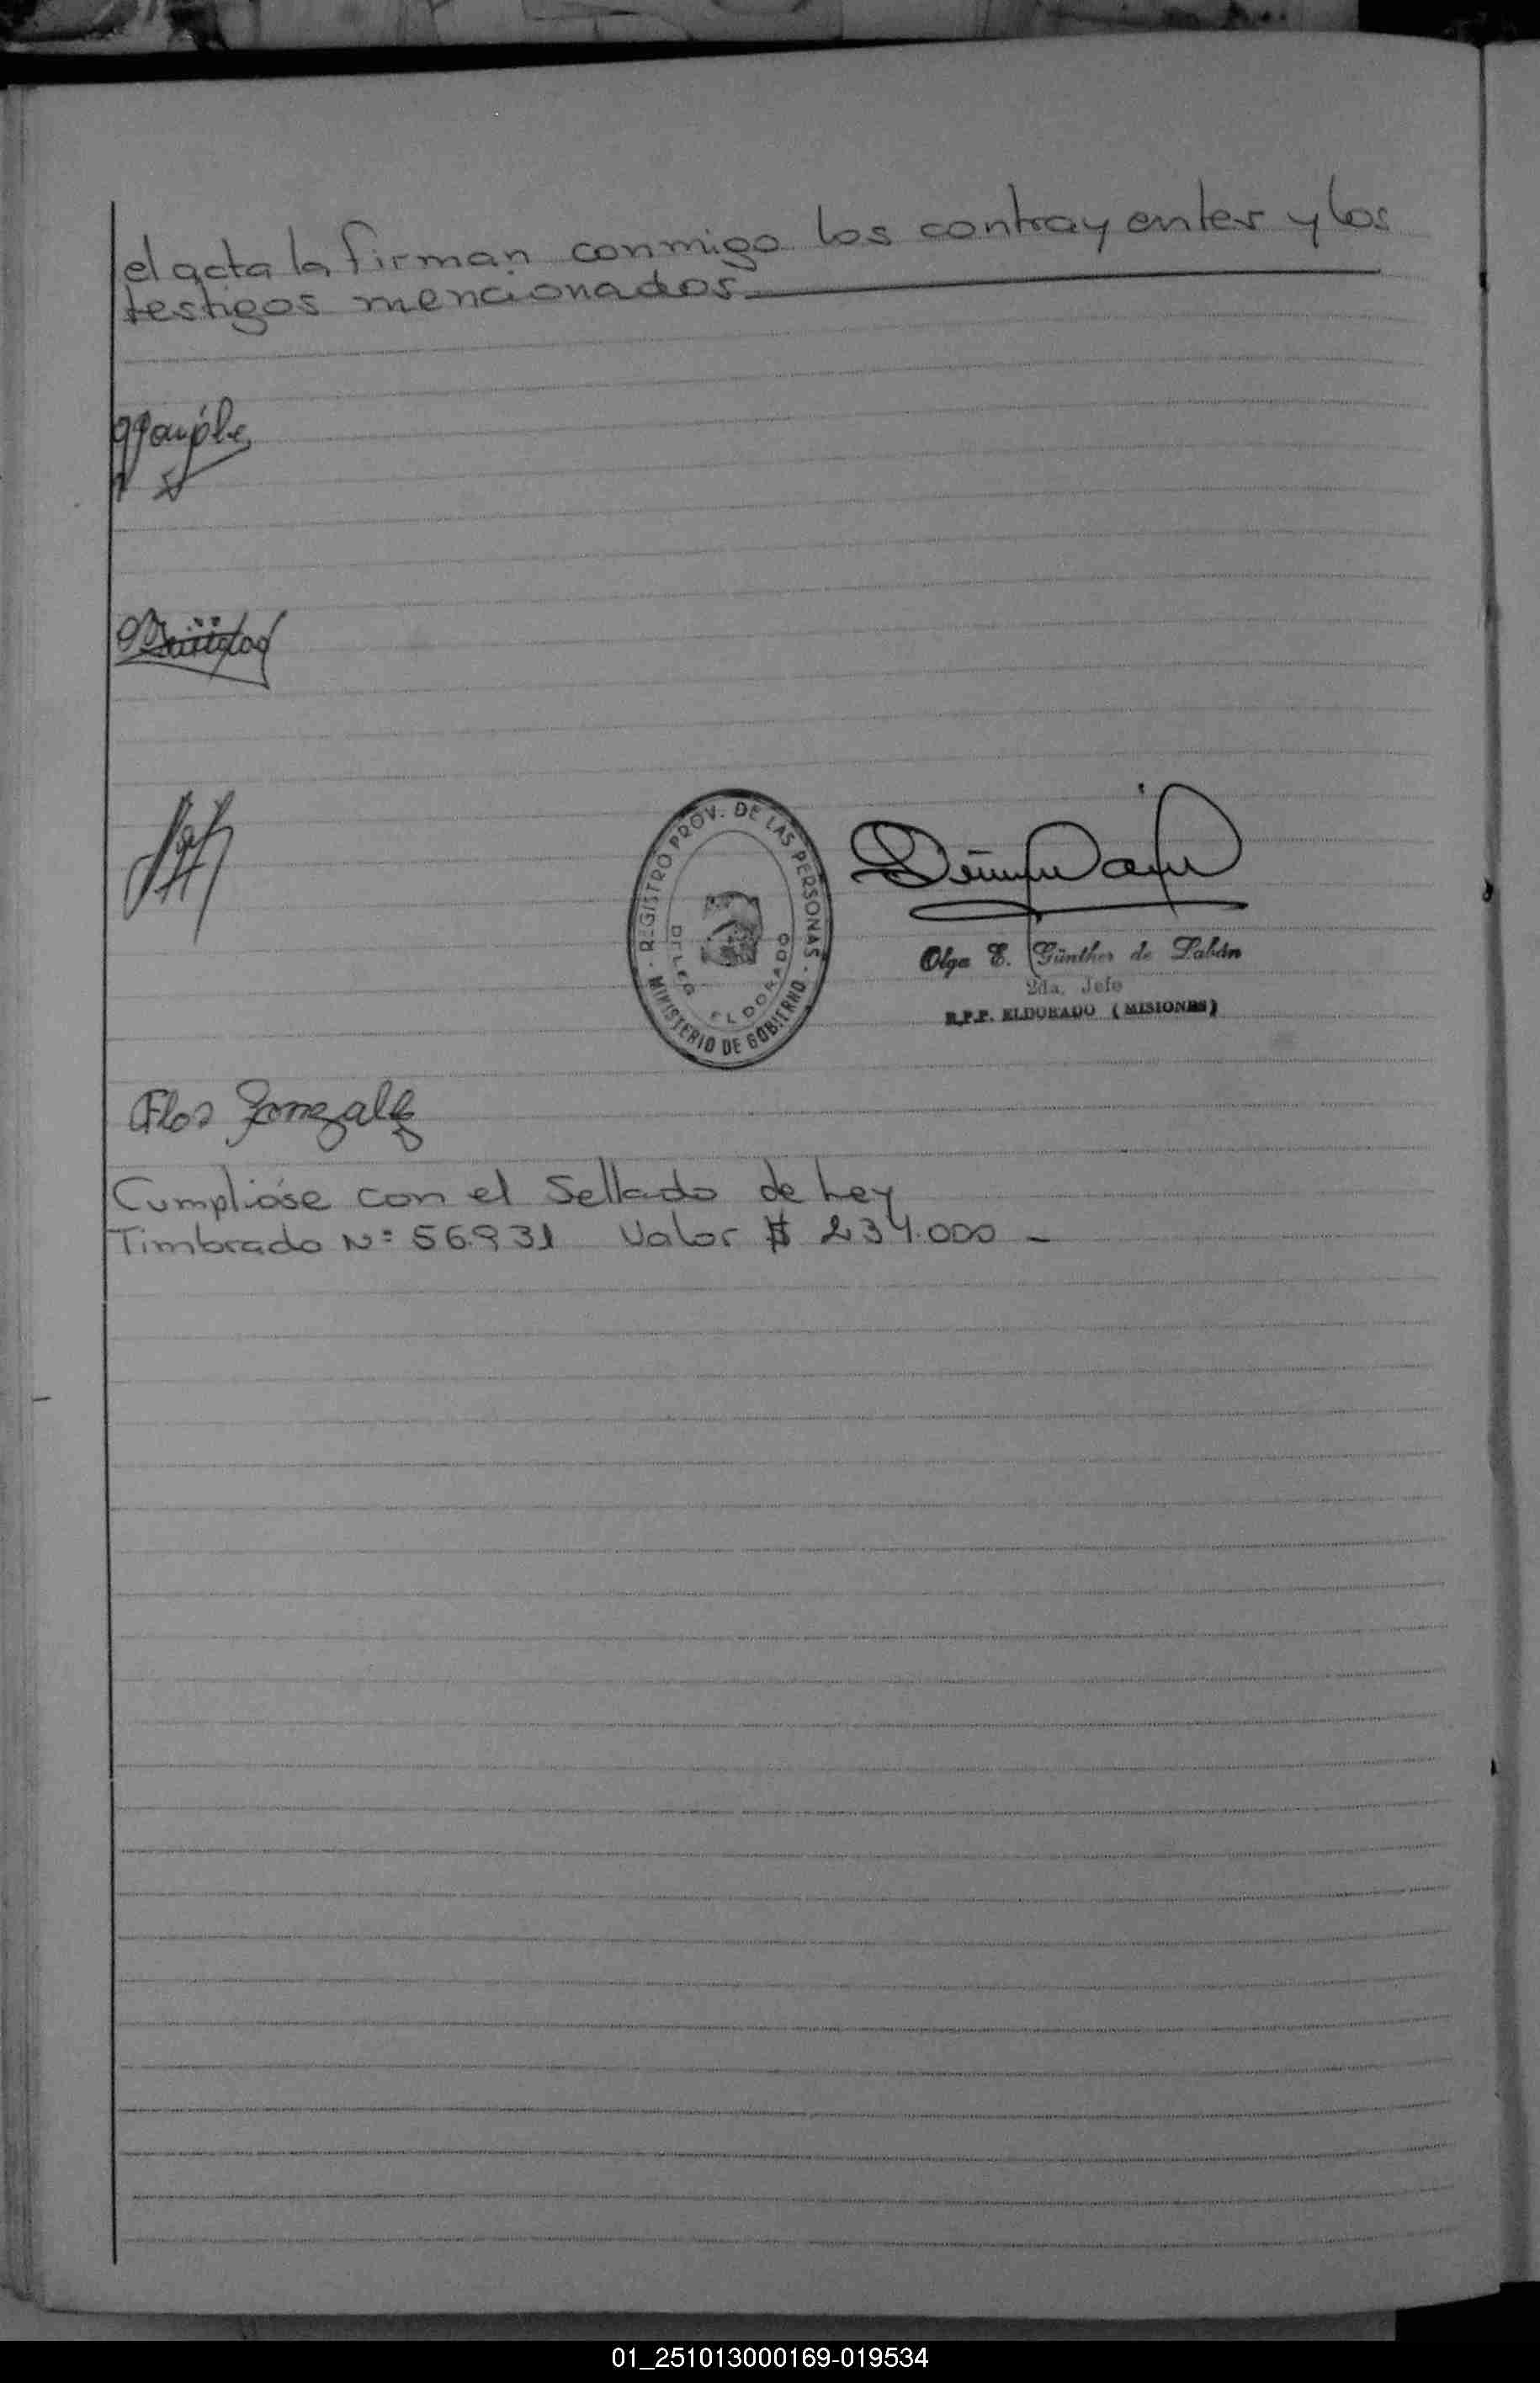 el acta la firman conmigo los contrayentes y los
testigos mencionados
REGISTRO PROV. DE LAS PERSONAS
DELEG. ELDORADO
MINISTERIO DE GOBIERNO
Olga E. Günther de Labán
2da. Jefe
R.P.P. ELDORADO (MISIONES)
Flor Gonzalez
Cumplióse con el Sellado de Ley
Timbrado Nº 56931 Valor $ 234.000 -
01_251013000169-019534